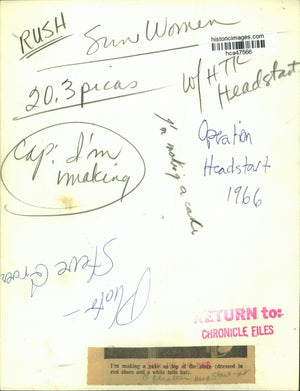 RUSH
Sun Women
historicimages.com
hca47566
20.3 picas
w/ HTK
Headstart
Cap: I'm
making
I'm making a cake
Operation
Headstart
1966
Photo -
Steve
RETURN to:
CHRONICLE FILES
I'm making a cake on top of the stove (dressed in
red shoes and a white tulle hat).